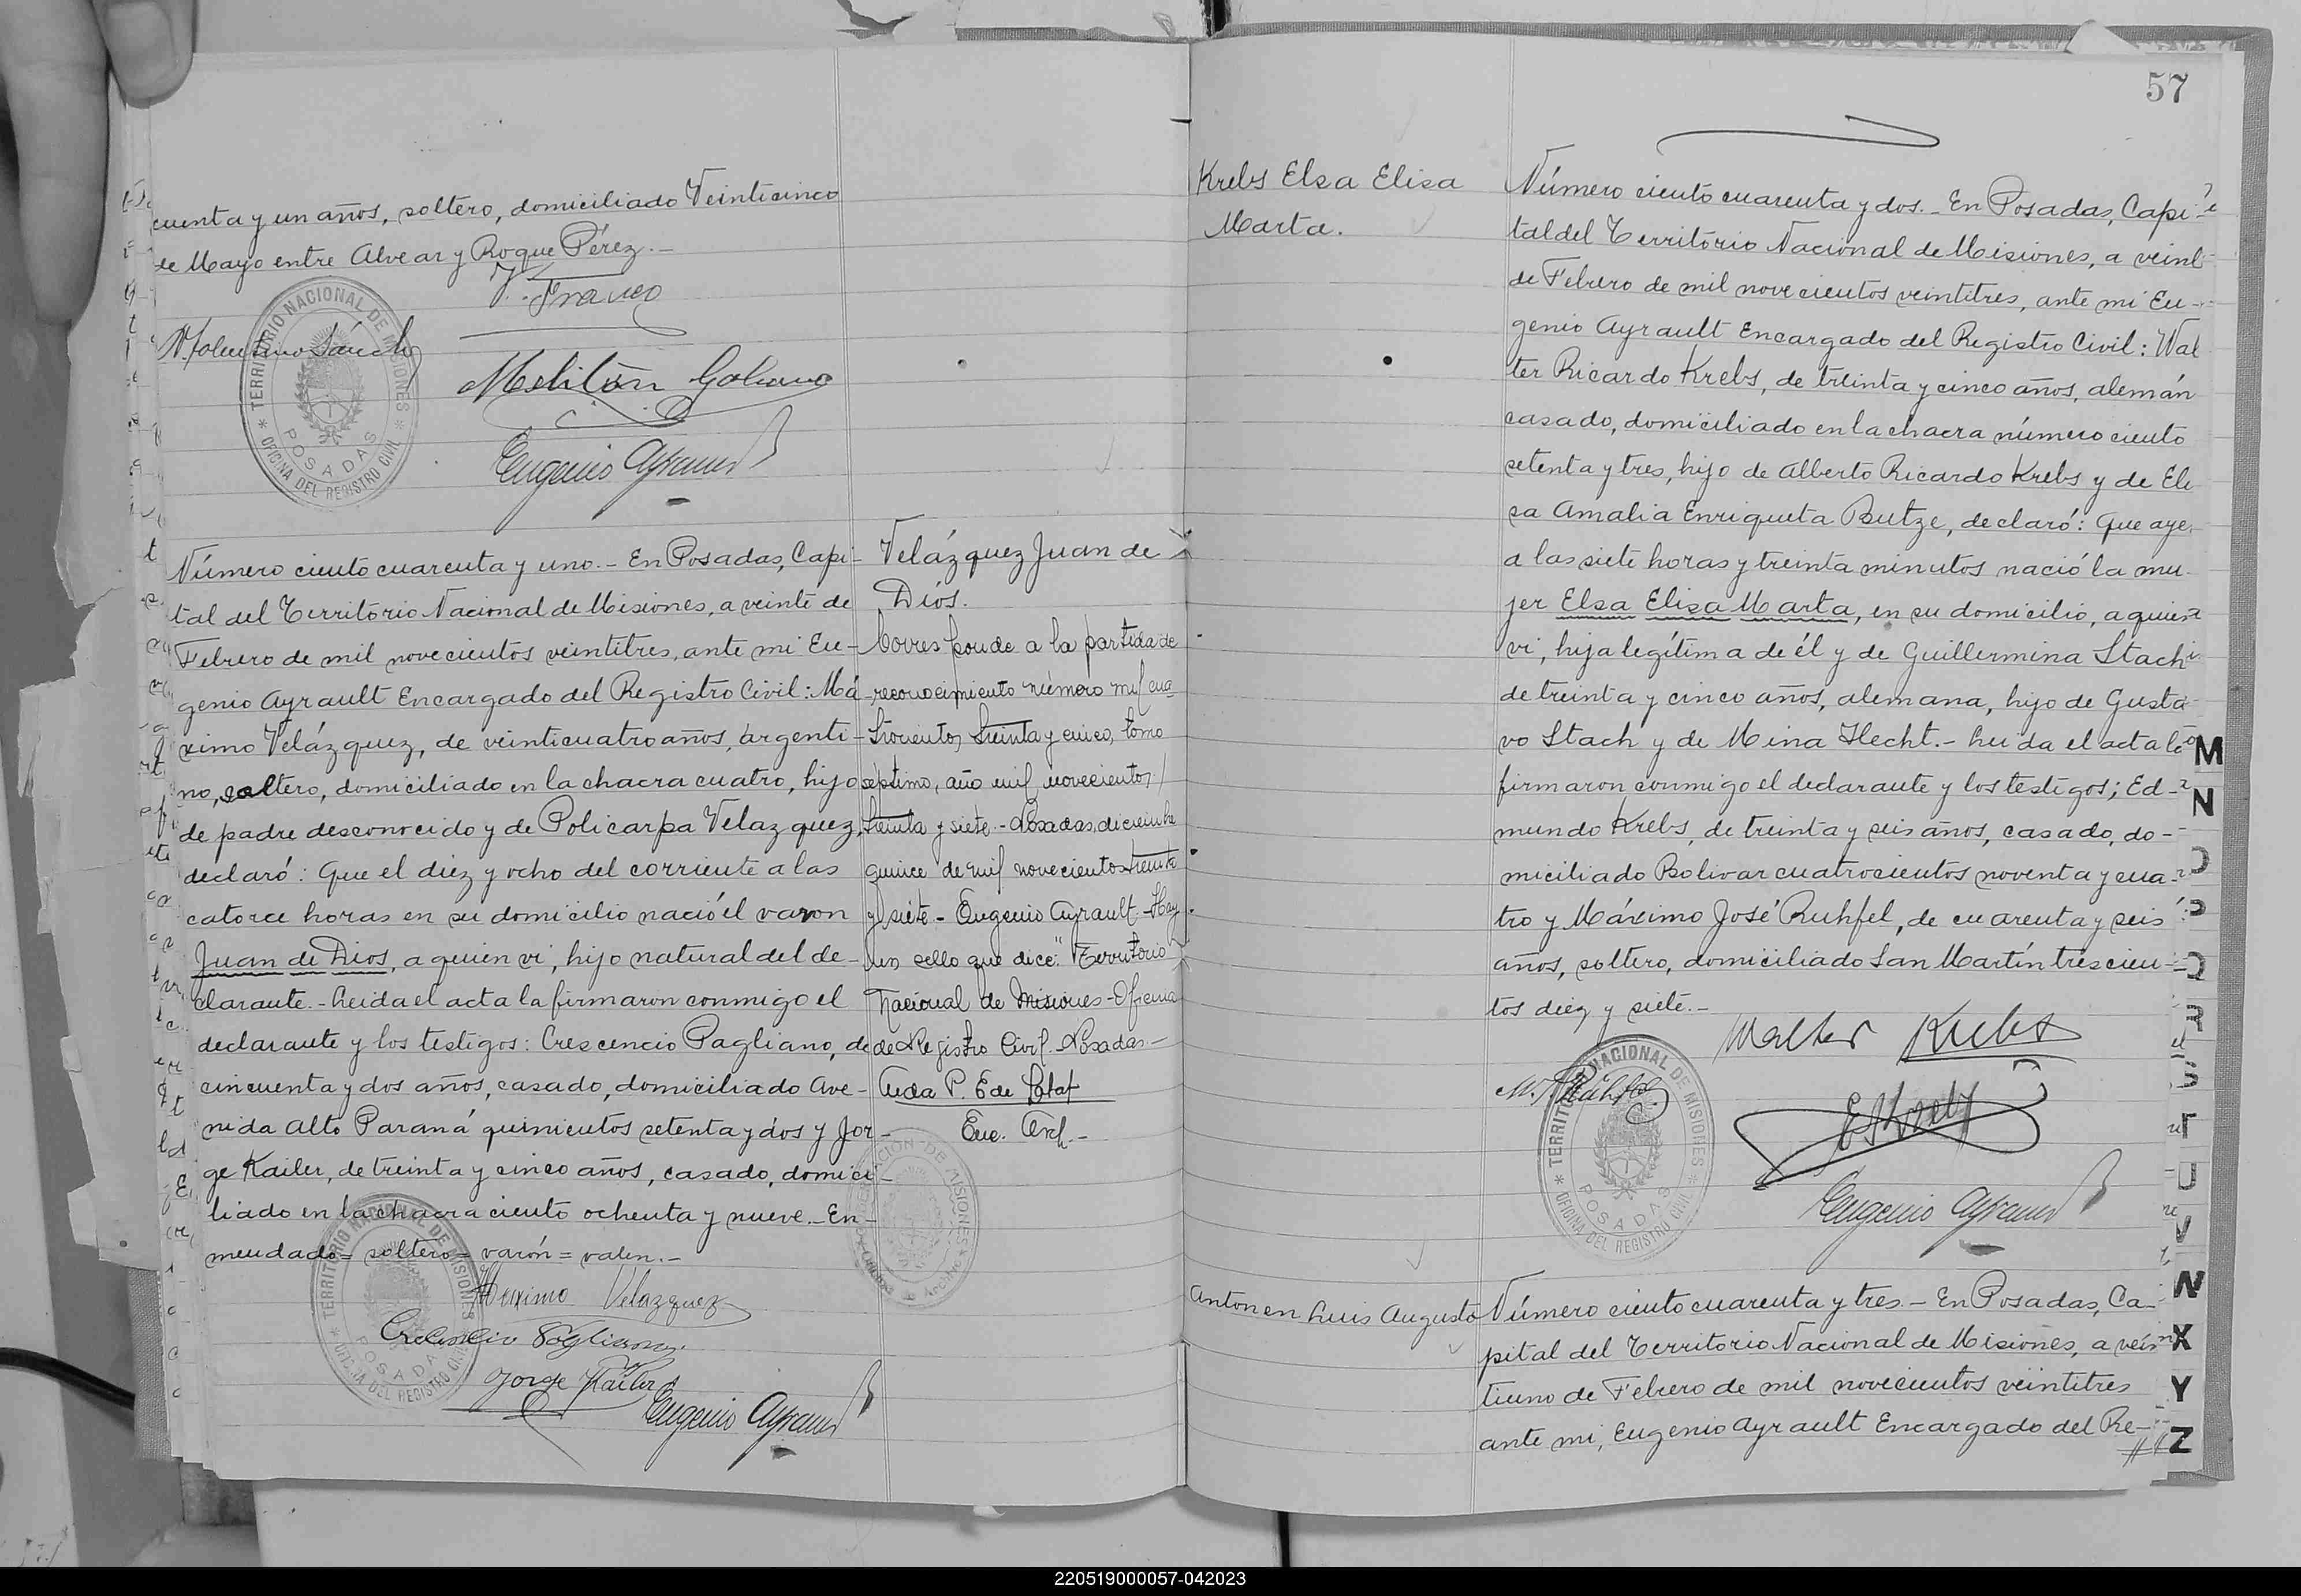 cuenta y un años, soltero, domiciliado Veinticinco
de Mayo entre Alvear y Roque Pérez.-
Franco
TERRITORIO NACIONAL DE MISIONES
POSADAS
* OFICINA DEL REGISTRO CIVIL *
Melitón
Eugenio Ayrault
Número ciento cuarenta y uno.- En Posadas, Capi-
tal del Territorio Nacional de Misiones, a veinte de
Febrero de mil novecientos veintitres, ante mi Eu-
genio Ayrault Encargado del Registro Civil: Má
ximo Velázquez, de veinticuatro años, argenti-
no, soltero, domiciliado en la chacra cuatro, hijo
de padre desconocido y de Policarpa Velazquez,
declaró: Que el diez y ocho del corriente a las
catorce horas en su domicilio nació el varon
Juan de Dios, a quien vi, hijo natural del de-
clarante.- Leida el acta la firmaron conmigo el
declarante y los testigos: Crescencio Pagliano, de
cincuenta y dos años, casado, domiciliado Ave-
nida Alto Paraná quinientos setenta y dos y Jor-
ge Kailer, de treinta y cinco años, casado, domici-
liado en la chacra ciento ochenta y nueve.- En-
mendado= soltero= varón= valen.-
Maximo Velazquez
Crescencio Pagliano
Jorge Kailer
Eugenio Ayrault
TERRITORIO NACIONAL DE MISIONES
POSADAS
OFICINA DEL REGISTRO CIVIL
Velázquez Juan de
Diós.
Corresponde a la partida de
reconocimiento número mil cua
trocientos treinta y cinco, tomo
séptimo, año mil novecientos
treinta y siete.- Posadas, diciembre
quince de mil novecientos treinta
y siete.- Eugenio Ayrault.- Hay
un sello que dice: "Territorio
Nacional de Misiones- Oficina
de Registro Civil.- Posadas.-
Enc. Arch.-
57
Krebs Elsa Elisa
Marta.
Número ciento cuarenta y dos.- En Posadas, Capi-
tal del Territorio Nacional de Misiones, a veint
de Febrero de mil novecientos veintitres, ante mi Eu-
genio Ayrault Encargado del Registro Civil: Wal
ter Ricardo Krebs, de treinta y cinco años, alemán
casado, domiciliado en la chacra número ciento
setenta y tres, hijo de Alberto Ricardo Krebs y de Eli
sa Amalia Enriqueta Butze, declaró: Que aye
a las siete horas y treinta minutos nació la mu-
jer Elsa Elisa Marta, en su domicilio, a quien
vi, hija legítima de él y de Guillermina Stach
de treinta y cinco años, alemana, hijo de Gusta
vo Stach y de Mina Hecht.- Leida el acta la
firmaron conmigo el declarante y los testigos; Ed-
mundo Krebs, de treinta y seis años, casado, do-
miciliado Bolivar cuatrocientos noventa y cua-
tro y Máximo José Ruhfel, de cuarenta y seis
años, soltero, domiciliado San Martín trescien-
tos diez y siete.-
Walter Krebs
M. J. Ruhfel
E Krebs
Eugenio Ayrault
TERRITORIO NACIONAL DE MISIONES
POSADAS
* OFICINA DEL REGISTRO CIVIL *
Antonen Luis Augusto
Número ciento cuarenta y tres.- En Posadas, Ca-
pital del Territorio Nacional de Misiones, a vein
tiuno de Febrero de mil novecientos veintitres
ante mi, Eugenio Ayrault Encargado del Re-
M
N
R
S
T
U
V
X
Y
Z
220519000057-042023